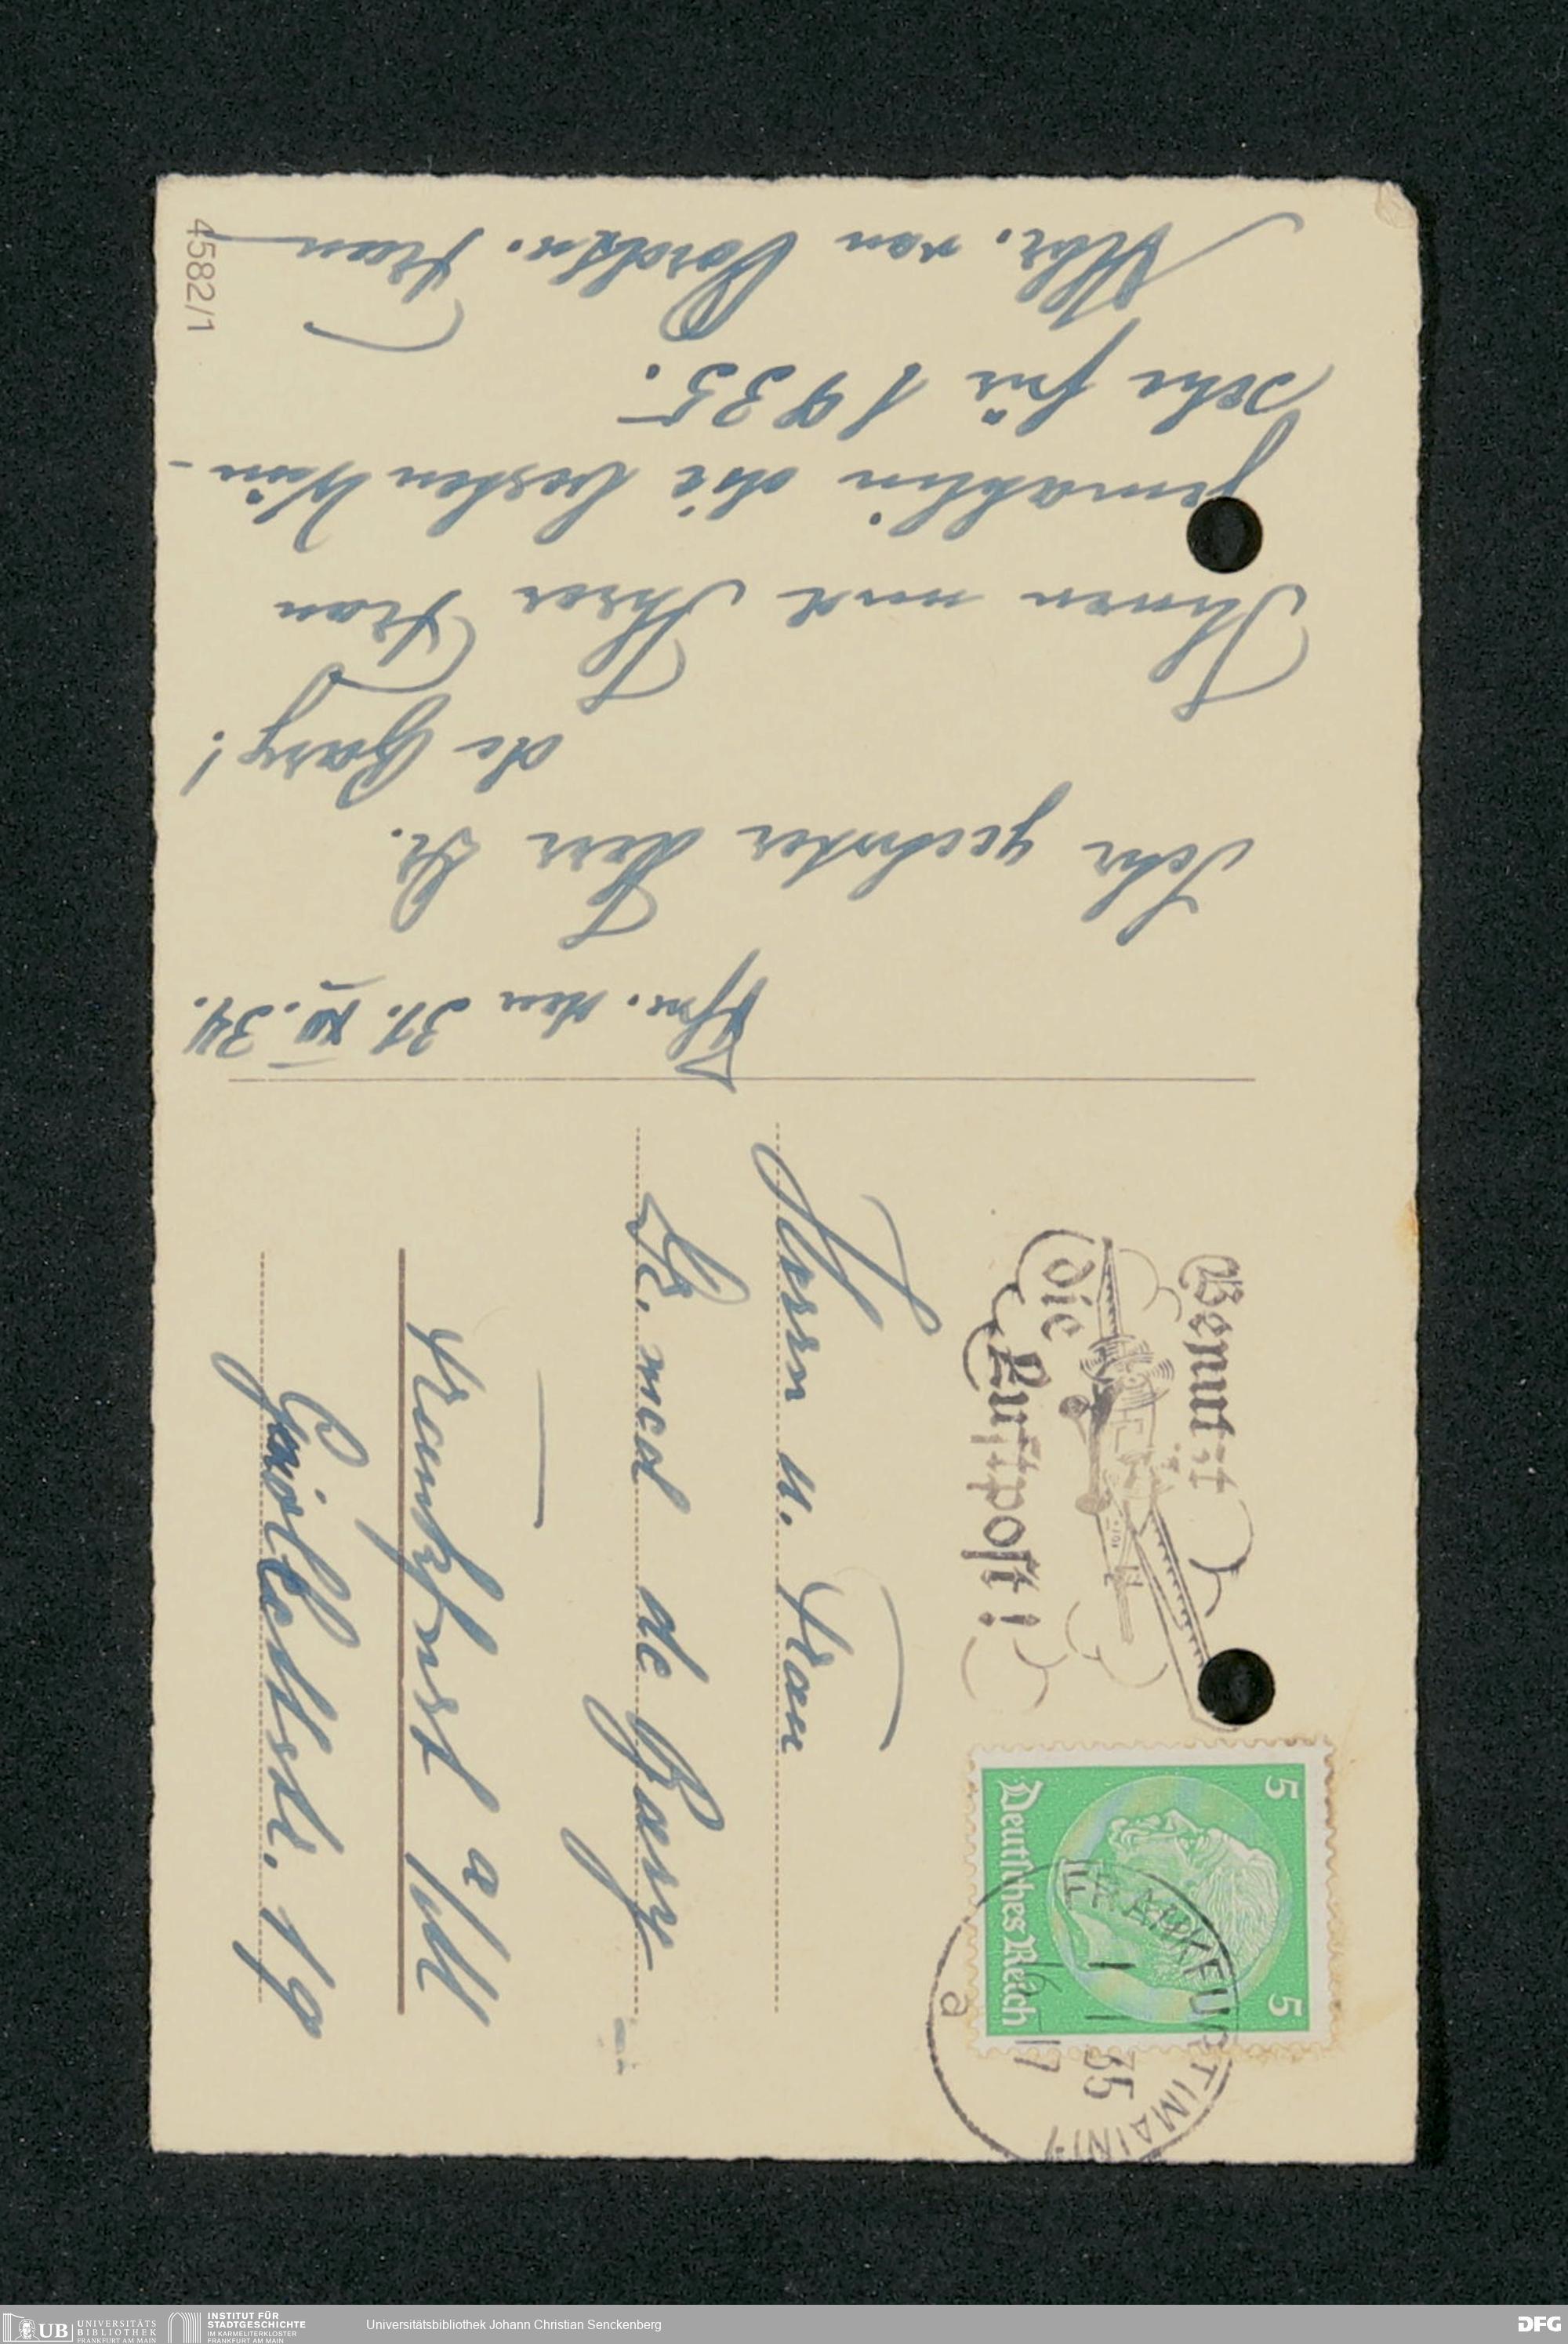 Ffm. den 31. XII. 34.
Sehr geehrter Herr Dr.
de Bary!
Ihnen und Ihrer Frau
Gemahlin die besten Wün-
sche für 1935.
Abr. van Cordten. Frau
Benutzt
die
Luftpost!
5 5
Deutsches Reich
FRANKFURT (MAIN) 1
1 1 35
16 17
a
Herrn u. Frau
Dr. med de Bary
Frankfurt a/M
Gwiollettstr. 19
4582/1
UB UNIVERSITÄTS
BIBLIOTHEK
FRANKFURT AM MAIN
INSTITUT FÜR
STADTGESCHICHTE
IM KARMELITERKLOSTER
FRANKFURT AM MAIN
Universitätsbibliothek Johann Christian Senckenberg
DFG